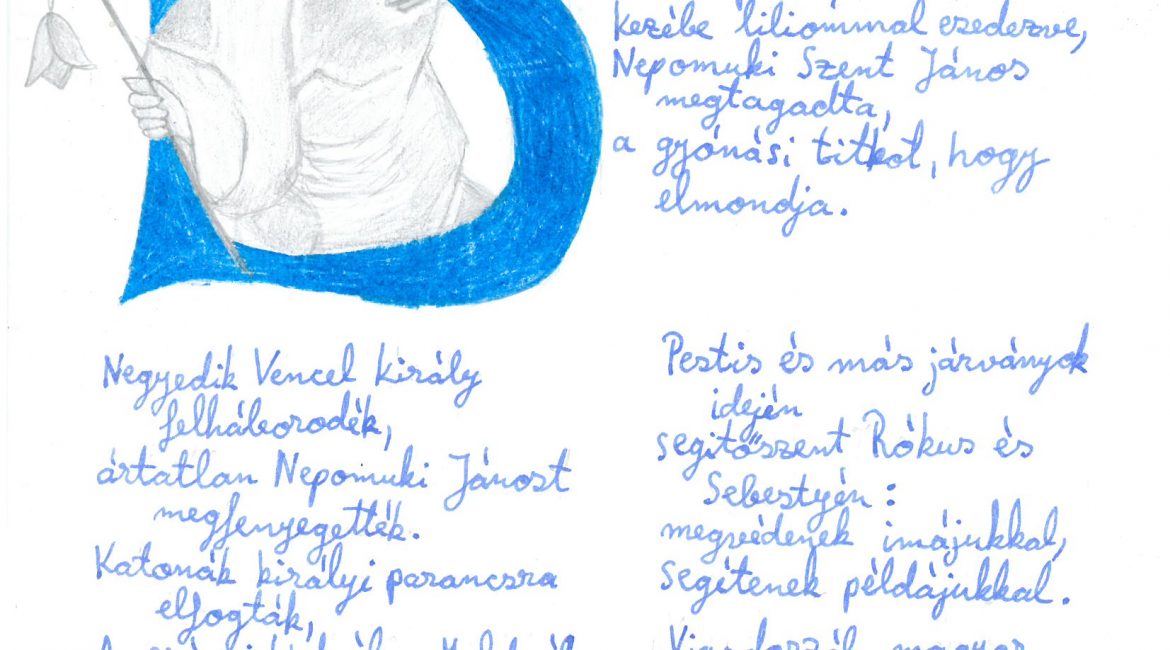 kezébe liliommal ezedezve,
Nepomuki Szent János
megtagadta,
a gyónási titkot, hogy
elmondja.
Negyedik Vencel király
felháborodék,
ártatlan Nepomuki Jánost
megfenyegették.
Katonák királyi parancsra
elfogták,
Pestis és más járványok
idején
segítőszent Rókus és
Sebestyén:
megvédenek imájukkal,
segítenek példájukkal.
magyar